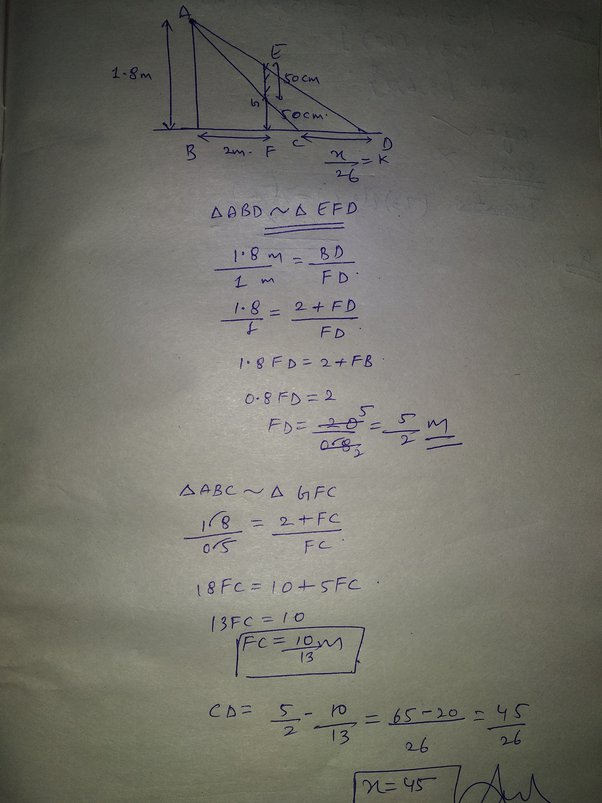 A
E
1.8m
50cm
G
50cm.
B 2m. F C D
x/26 = K
ΔABD ~ Δ EFD
1.8 m / 1 m = BD / FD.
1.8 / 1 = 2+FD / FD.
1.8 FD = 2 + FB.
0.8 FD = 2
FD = 20 5 / 0.8 2 = 5/2 M
ΔABC ~ Δ GFC
1.8 / 0.5 = 2+FC / FC.
18FC = 10 + 5FC.
13FC = 10
FC = 10/13 M
CD = 5/2 - 10/13 = 65-20 / 26 = 45/26
x = 45